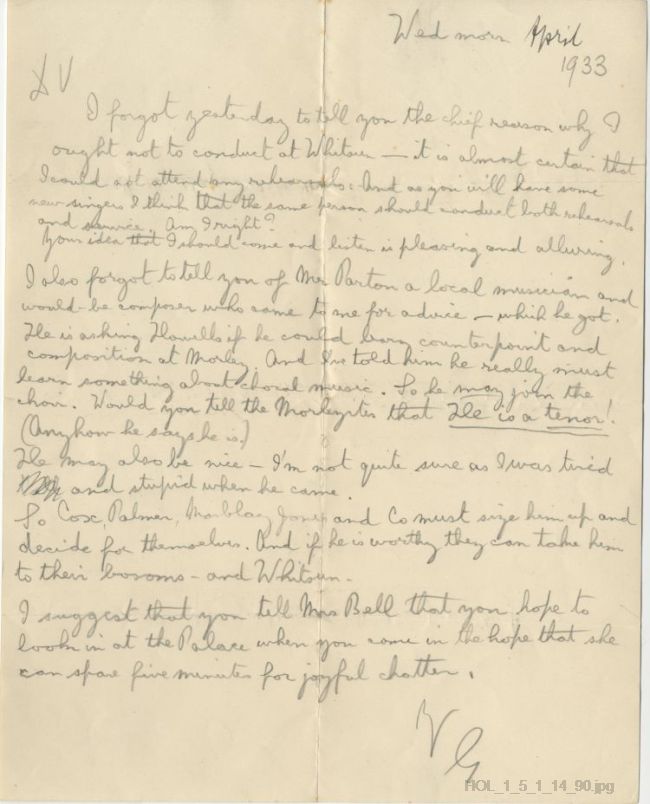 Wed morn April
1933
D V
I forgot yesterday to tell you the chief reason why I
ought not to conduct at Whitsun — it is almost certain that
I could not attend any rehearsals. And as you will have some
new singers I think that the same person should conduct both rehearsals
and service. Am I right?
Your idea that I should come and listen is pleasing and alluring.
I also forgot to tell you of Mr Parton a local musician and
would-be composer who came to me for advice — which he got.
He is asking Howells if he could learn counterpoint and
composition at Morley. And I've told him he really must
learn something about choral music. So he may join the
choir. Would you tell the Morleyites that He is a tenor!
(Anyhow he says he is.)
He may also be nice — I'm not quite sure as I was tired
and stupid when he came.
So Cox, Palmer, Jones and Co must size him up and
decide for themselves. And if he is worthy they can take him
to their bosoms — and Whitsun.
I suggest that you tell Mrs Bell that you hope to
look in at the Palace when you come in the hope that she
can spare five minutes for joyful chatter.
G
HOL_1_5_1_14_90.jpg